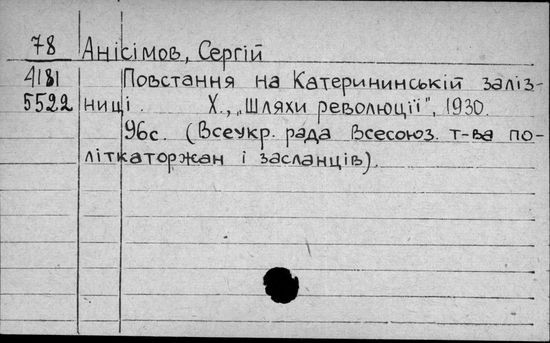 78 Анісімов, Сергій
4181 Повстання на Катерининській заліз-
5522 ниці. Х., „Шляхи революції", 1930.
96с. (Всеукр. рада Всесоюз. т-ва по-
літкаторжан і засланців).